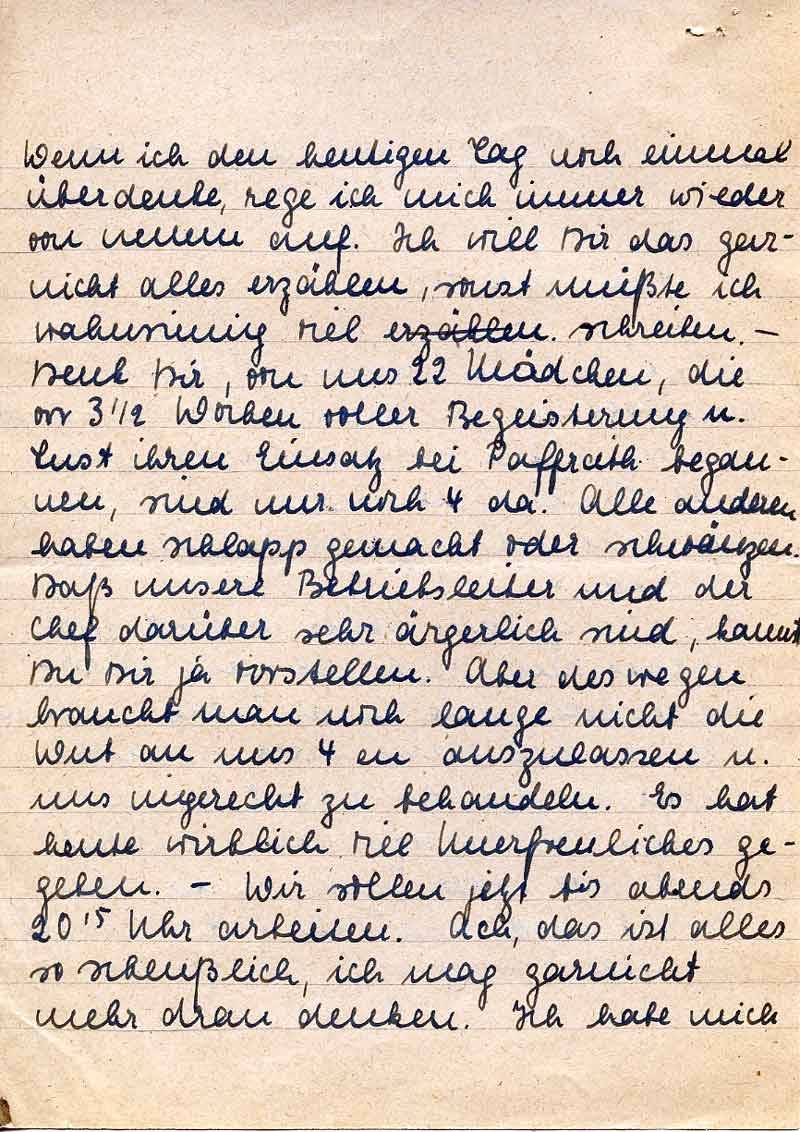 Wenn ich den heutigen Tag noch einmal
überdenke, rege ich mich immer wieder
von neuem auf. Ich will Dir das gar-
nicht alles erzählen, sonst müßte ich
wahnsinnig viel erzählen. schreiben. –
Denk Dir, von uns 22 Mädchen, die
vor 3 1/2 Wochen voller Begeisterung u.
Lust ihren Einsatz bei Paffrath began-
nen, sind nur noch 4 da. Alle anderen
haben schlapp gemacht oder schwänzen.
Daß unsere Betriebsleiter und der
Chef darüber sehr ärgerlich sind, kannst
Du Dir ja vorstellen. Aber deswegen
braucht man noch lange nicht die
Wut an uns 4 en auszulassen u.
uns ungerecht zu behandeln. Es hat
heute wirklich viel Unerfreuliches ge-
geben. – Wir sollen jetzt bis abends
20¹⁵ Uhr arbeiten. Ach, das ist alles
so scheußlich, ich mag garnicht
mehr dran denken. Ich habe mich